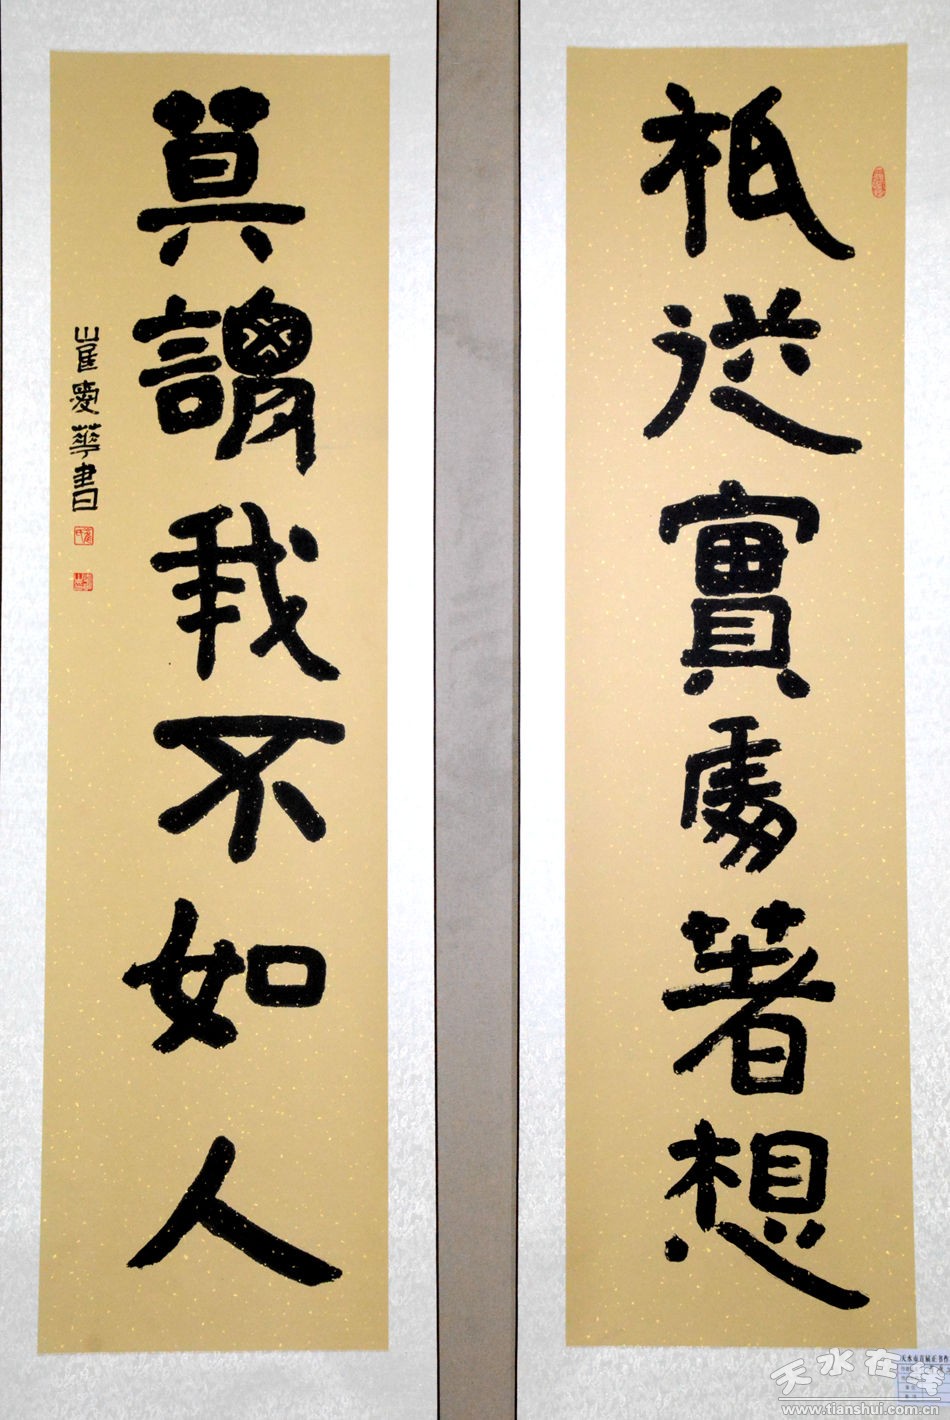 祇從實處著想
莫謂我不如人
崔愛華書
天水在线
www.tianshui.com.cn